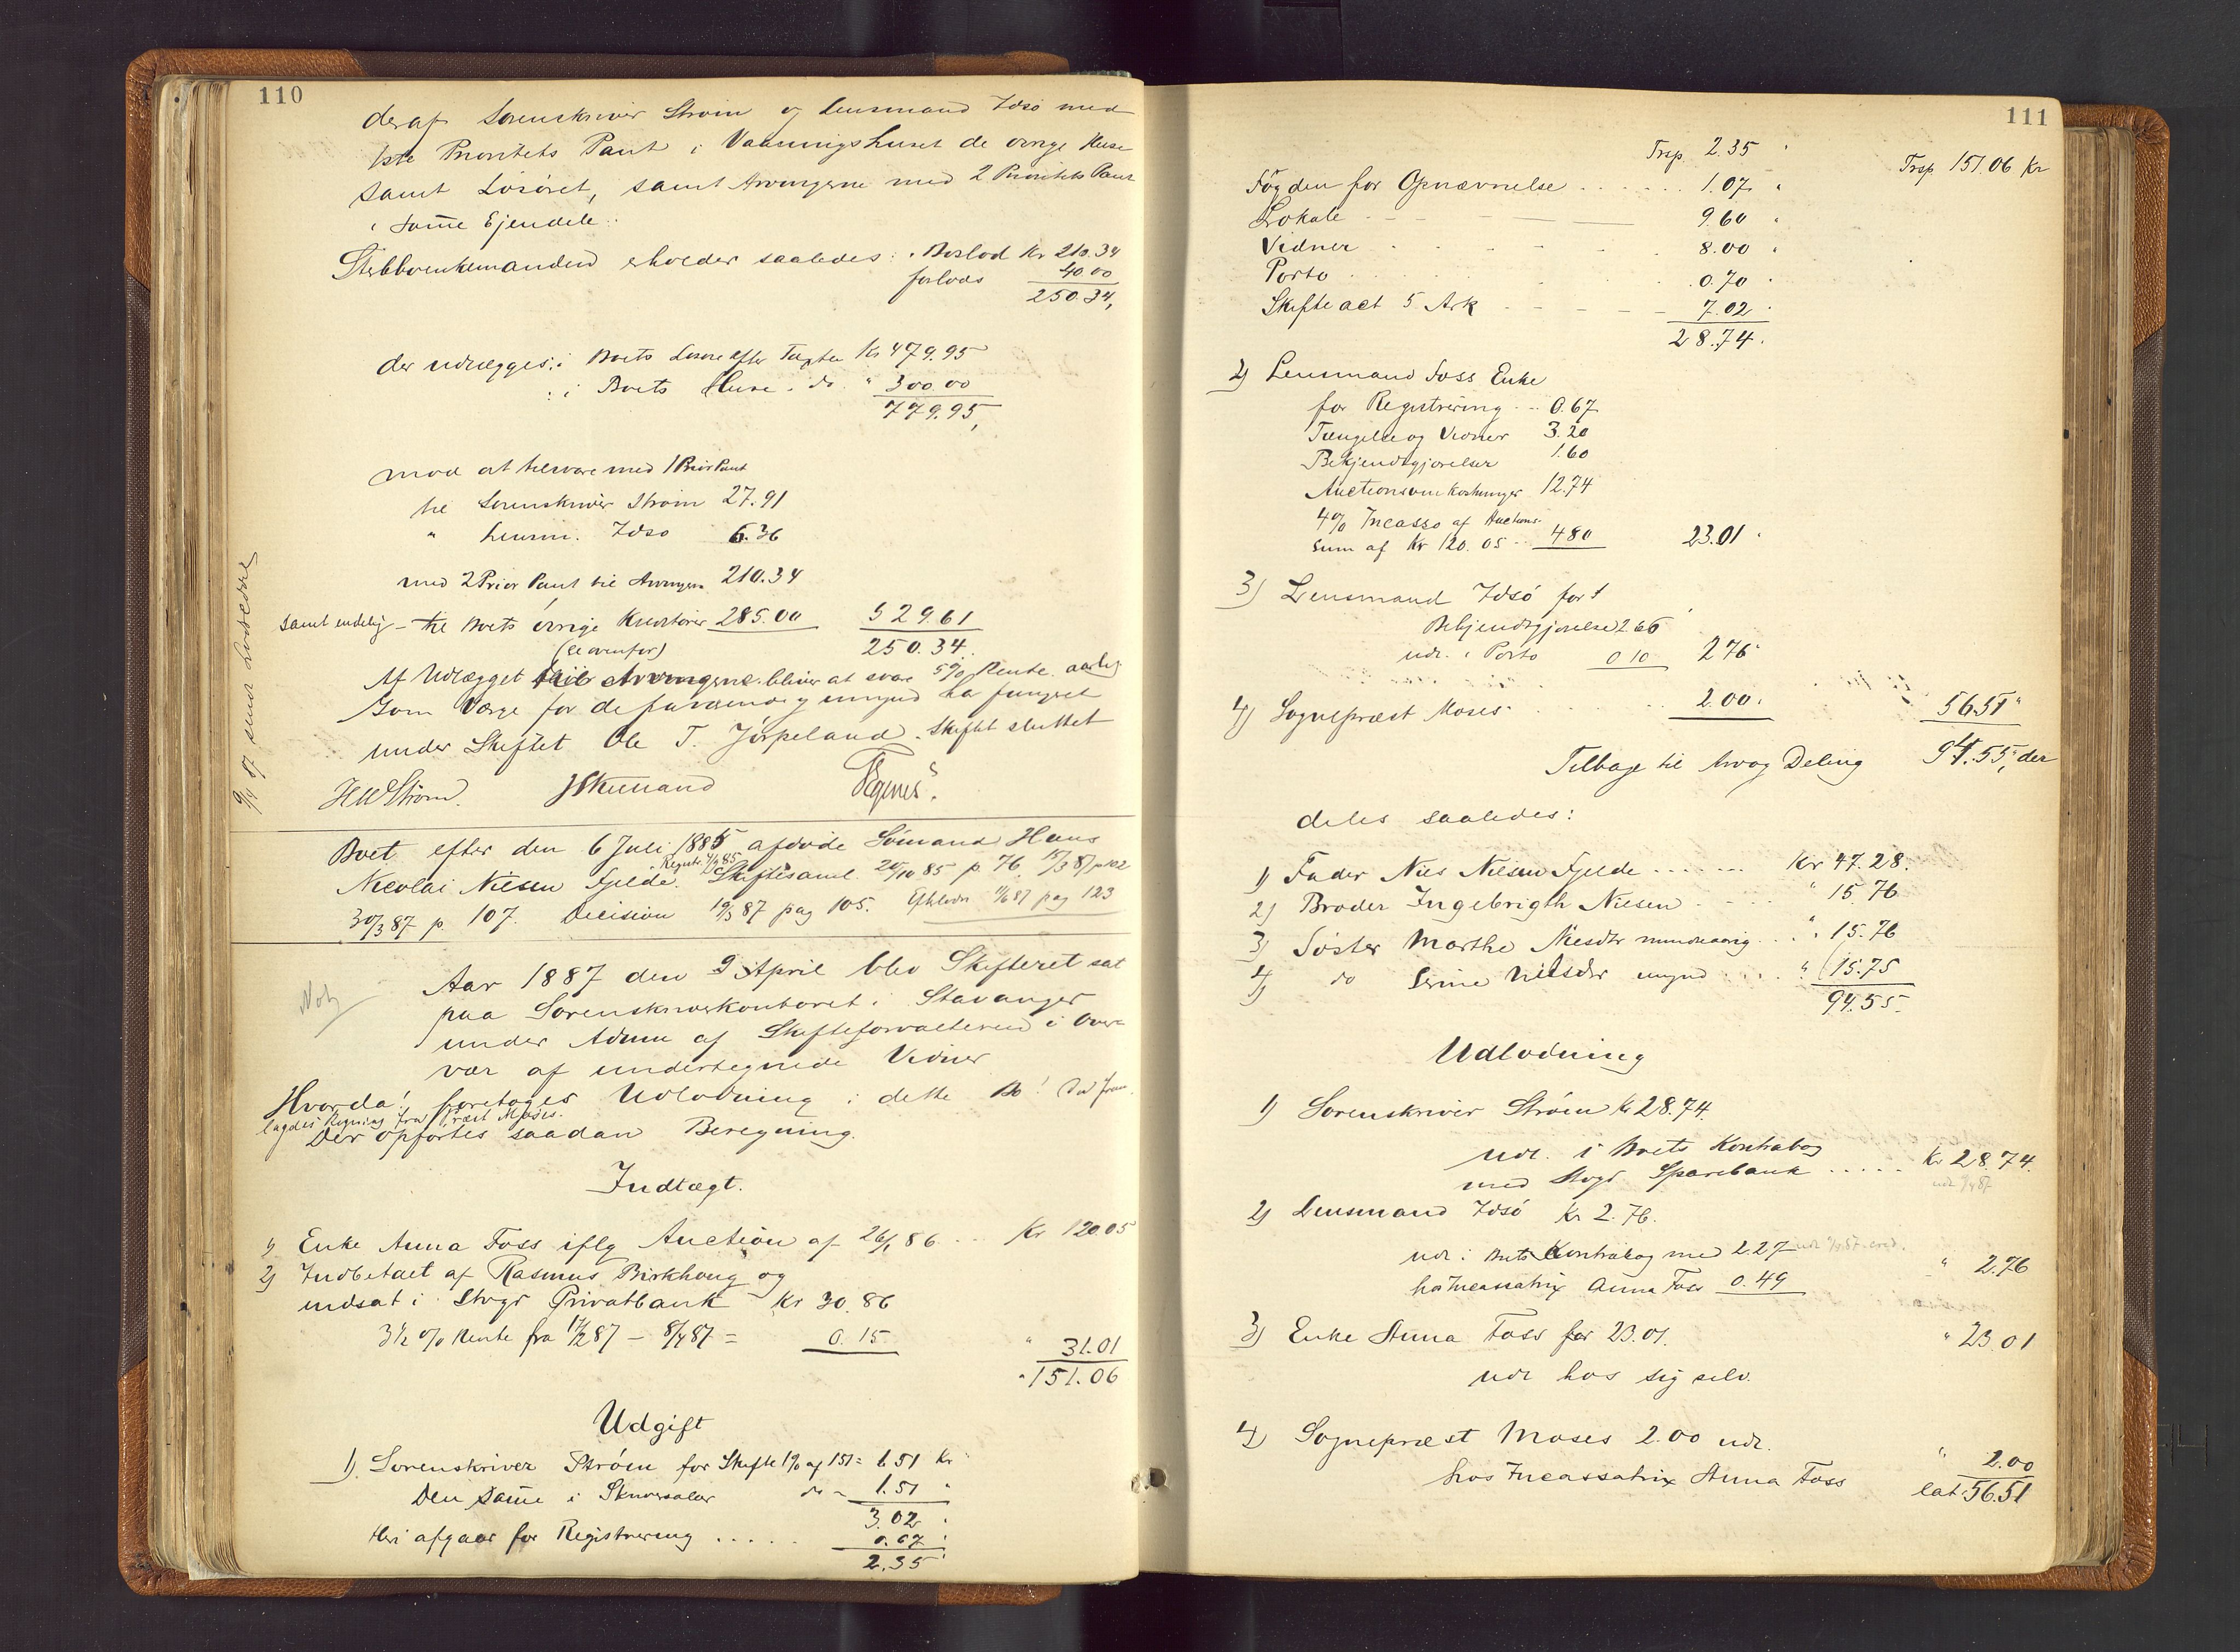 110
deraf Sorenskriver Strøm og Lensmand Idsø med
1ste Prioritets Pant i Vaaningshuset de øvrige Huse
samt Løsøret, samt Arvingerne med 2 Prioritets Pant
i samme Ejendele.
Stervboenkemanden erholder saaledes: Boslod Kr 210.34
forlods 40.00
250.34,
der udlægges: i Boets Løsøre efter Taxten Kr 479.95
: i Boets Huse. do. " 300.00
779.95,
mod at tilsvare med 1 Prior Pant
til Sorenskriver Strøm 27.91
" Lensm. Idsø 6.36
med 2 Prior Pant til Arvingerne 210.34
samt endelig - til Boets øvrige Kreditorer 285.00 529.61
(se ovenfor) 250.34.
Af Udlægget til Arvingerne bliver at svare 5% Rente aarlig
Som Værge for de fraværende og umynd har fungeret
under Skiftet Ole T. Jørpeland. Skiftet sluttet
HWStrøm.
9/4 87
Boet efter den 6 Juli 1885 afdøde Sømand Hans
Nicolai Nilsen Fjelde. Registr. Skiftesaml. 24/10 85 p. 76, 15/3 87 p 102
30/3 87 p. 107. Decision 19/3 87 pag 105. Efterlodn 11/6 87 pag 123
Aar 1887 den 9 April blev Skifteret sat
paa Sorenskriverkontoret i Stavanger
under Adm af Skifteforvalteren i Over-
vær af undertegnede Vidner
Hvorda: foretoges Udlodning i dette Bo! Der frem-
lagdes Regning fra Præst Moses.
Der opførtes saadan Beregning.
Indtægt.
1) Enke Anna Foss iflg Auction af 26/1 86 ... Kr 120.05
2) Indbetalt af Rasmus Birkhaug og
indsat i Stvgr Privatbank Kr 30.86
3½ % Rente fra 17/2 87 – 8/4 87 = 0.15 " 31.01
" 151.06
Udgift
1) Sorenskriver Strøm for Skifte 1% af 151 = 1.51 Kr
Den samme i Skriversalær do - 1.51 "
3.02
Heri afgaar for Registrering ..... 0.67
2.35
111
Trsp. 2.35 Trsp 151.06 Kr
Fogden for Opnævnelse ...... 1.07
Lokale 9.60
Vidner 8.00
Porto 0.70
Skifteact 5 Ark 7.02
28.74.
2) Lensmand Foss Enke
for Registrering ... 0.67
Tilsigelse og Vidner 3.20
Bekjendtgjørelser 1.60
Auctionsomkostninger 12.74
4% Incasso af Auctions-
sum af Kr 120.05 .. 4.80 23.01
3) Lensmand Idsø for 1
Bekjendtgjørelse 2.66
udl. i Porto 0.10 2.76
4) Sogneprest Moses 2.00. 56.51
Tilbage til Arv og Deling 94.55, der
deles saaledes:
1) Fader Nils Nilsen Fjelde ....... Kr 47.28.
2) Broder Ingebrigth Nilsen " 15.76
3) Søster Marthe Nilsdtr mindreaarig .. " 15.76
4) do Serine Nilsdtr umynd .... " 15.75
94.55.
Udlodning
1) Sorenskriver Strøm Kr 28.74.
udl. i Boets Kontrabog
med Stvgr Sparebank ..... Kr 28.74.
2) Lensmand Idsø Kr 2.76.
udl. i Boets Kontrabog med 2.27
hos Incassatrix Anna Foss 0.49 " 2.76
3) Enke Anna Foss for 23.01. " 23.01
udl hos sig selv.
4) Sogneprest Moses 2.00 udl.
hos Incassatrix Anna Foss " 2.00
lat. 56.51